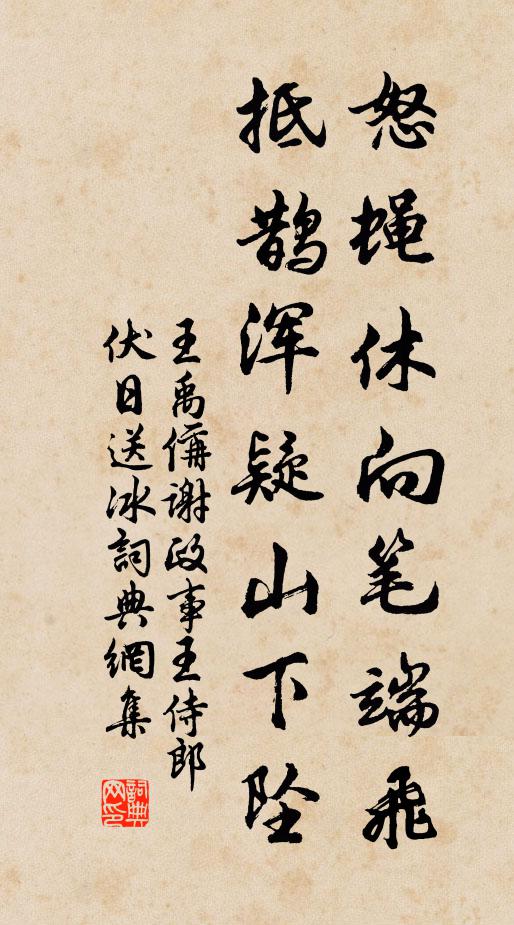 怒蝇休向笔端飞
抵鹊浑疑山下坠
王禹偁谢政事王侍郎
伏日送冰詞典網集
詞典网印